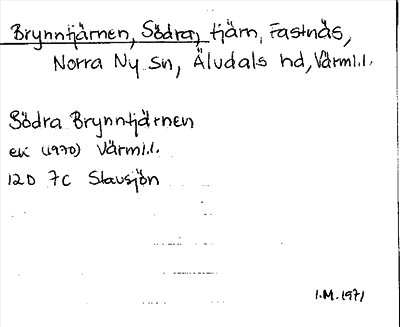 Brynntjärnen, Södra, tjärn, Fastnäs,
Norra Ny sn, Älvdals hd, Värml.l.
Södra Brynntjärnen
ek (1970) Värml.l.
12D 7C Stavsjön
I.M. 1971